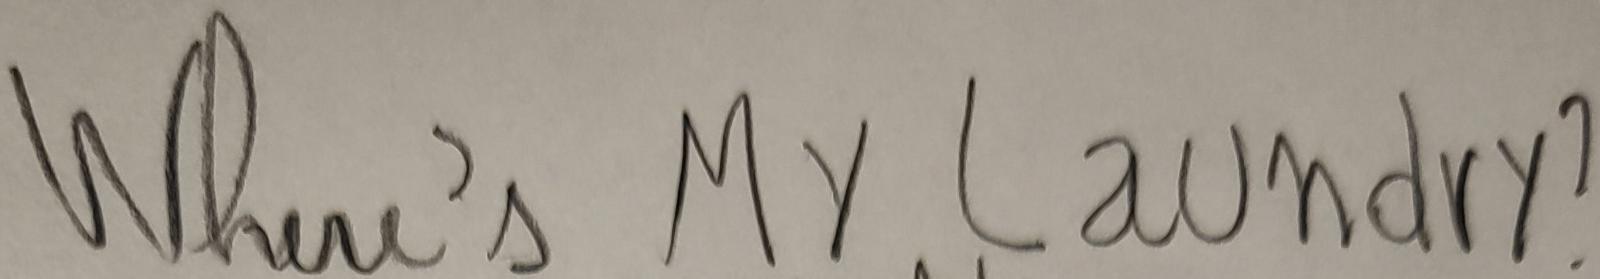 Where's My Laundry?